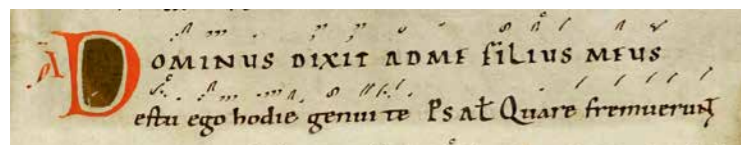 A DOMINUS DIXIT AD ME FILIUS MEUS
es tu ego hodie genui te Psal Quare fremuerunt